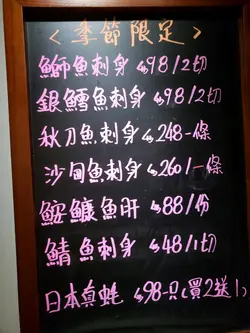 <季節限定>
鰤魚刺身 $98/2切
銀鱈魚刺身 $98/2切
秋刀魚刺身 $248一條
沙甸魚刺身 $260/一條
鮟鱇魚肝 $88/份
鯖魚刺身 $48/1切
日本真蚝 $98一只(買2送1)